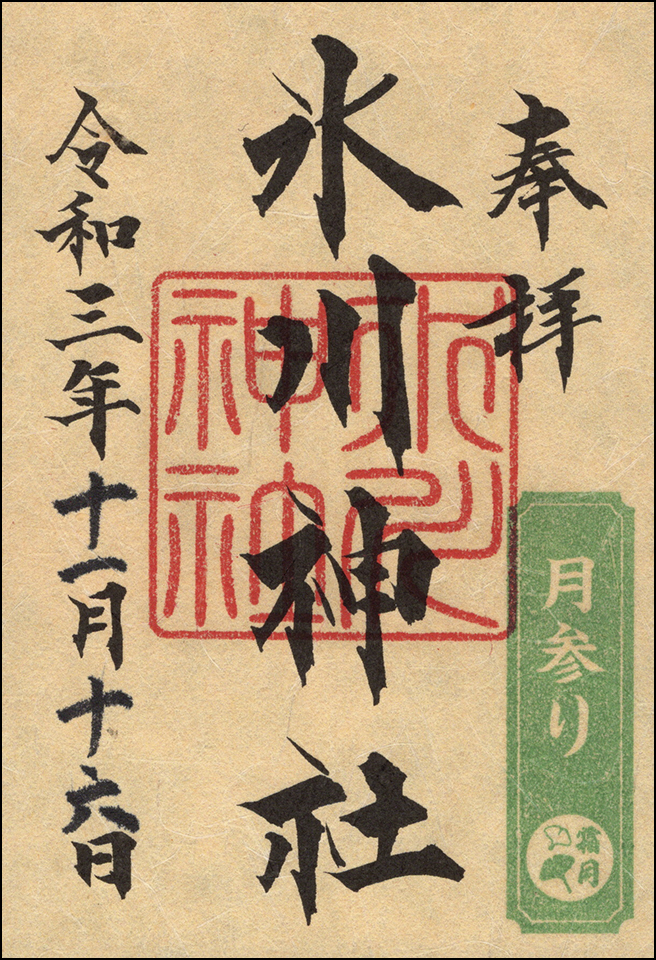 奉拝
月参り
霜月
氷川神社
氷川神社
令和三年十一月十六日